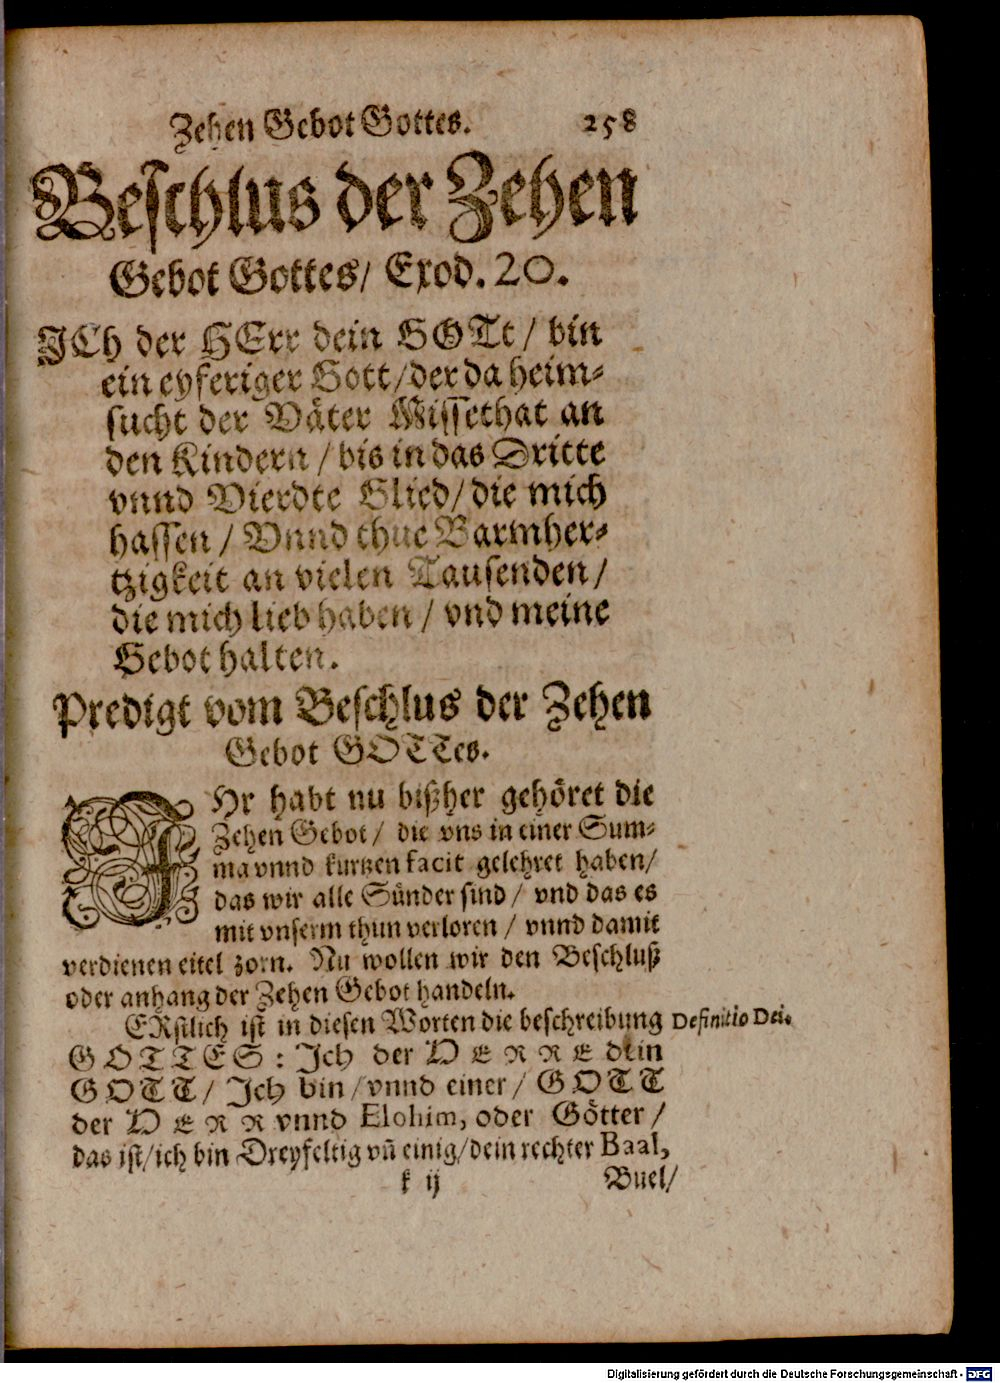 Zehen Gebot Gottes. 258
Beschlus der Zehen
Gebot Gottes/ Exod. 20.
JCh der HErr dein GOTt / bin
ein eyferiger Gott/der da heim-
sucht der Väter Missethat an
den Kindern / bis in das Dritte
vnnd Vierdte Glied/die mich
hassen / Vnnd thue Barmher-
tzigkeit an vielen Tausenden/
die mich lieb haben / vnd meine
Gebot halten.
Predigt vom Beschlus der Zehen
Gebot GOTTes.
JHr habt nu bißher gehöret die
Zehen Gebot/ die vns in einer Sum-
ma vnnd kurtzen facit gelehret haben/
das wir alle Sünder sind / vnd das es
mit vnserm thun verloren / vnnd damit
verdienen eitel zorn. Nu wollen wir den Beschluß
oder anhang der Zehen Gebot handeln.
ERstlich ist in diesen Worten die beschreibung Definitio Dei.
GOTTES: Ich der HERRE dein
GOTT/ Ich bin/vnnd einer/ GOTT
der HERR vnnd Elohim, oder Götter/
das ist/ich bin Dreyfeltig vñ einig/dein rechter Baal,
k ij Buel/
Digitalisierung gefördert durch die Deutsche Forschungsgemeinschaft - DFG